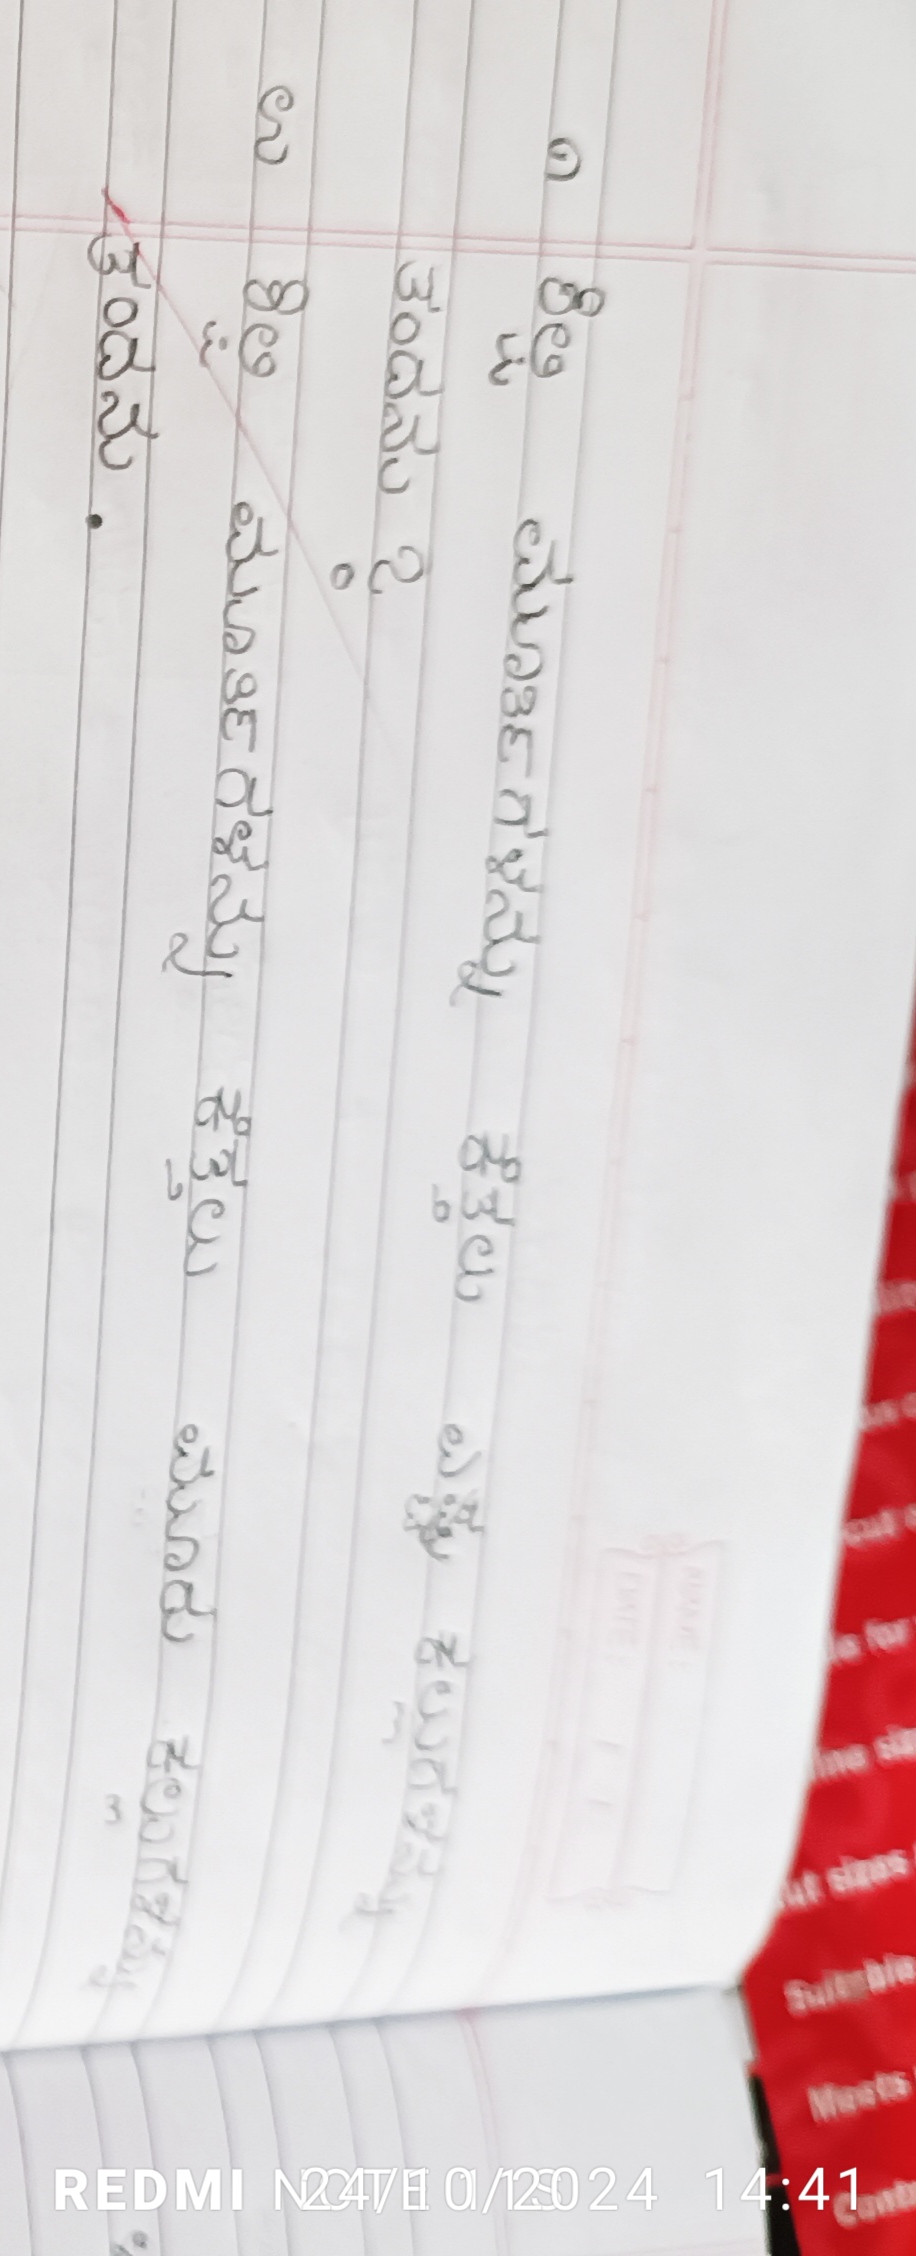 ೧ ಶಿಲ್ಪಿ ಮೂರ್ತಿಗಳನ್ನು ಕೆತ್ತಲು ಎಷ್ಟು ಕಲ್ಲುಗಳನ್ನು
ತಂದನು ?
ಉ ಶಿಲ್ಪಿ ಮೂರ್ತಿಗಳನ್ನು ಕೆತ್ತಲು ಮೂರು ಕಲ್ಲುಗಳನ್ನು
ತಂದನು .
NAME:
DATE: / /
Suitable
Meets
REDMI 24/10/2024 14:41